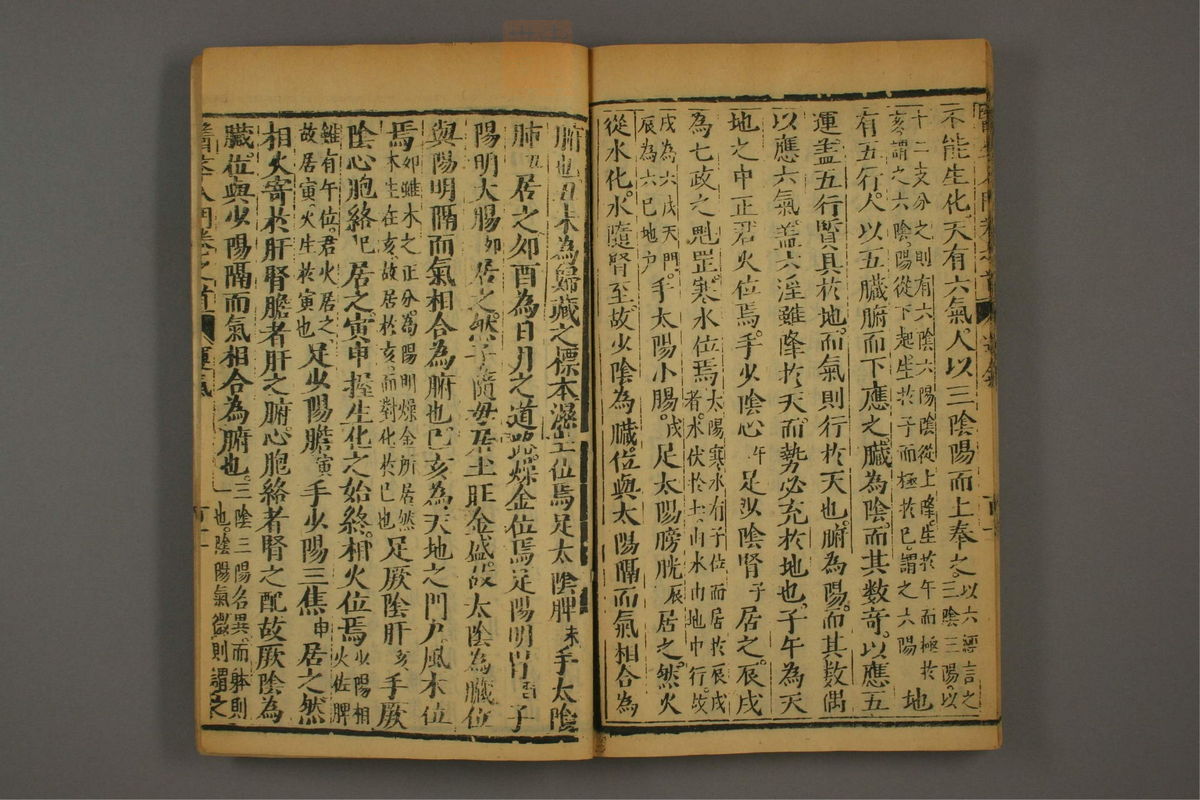 不能生化天有六氣人以三陰陽而上奉之以六經言之三陰三陽以
十二支分之則有六陰六陽陰從上降生於午而極於亥謂之六陰陽從下起生於子而極於巳謂之六陽地
有五行人以五臟腑而下應之臟為陰而其數奇以應五
運盖五行暨具於地而氣則行於天也腑為陽而其數偶
以應六氣盖六淫雖降於天而勢必充於地也子午為天
地之中正君火位焉手少陰心午足少陰腎子居之辰戌
為七政之魁罡寒水位焉太陽寒水有子位而居於辰戌者水伏於土由水由地中行故
戌為六戊天門辰為六巳地户手太陽小腸戌足太陽膀胱辰居之然火
從水化水隨腎至故少陰為臟位與太陽隔而氣相合為
腑也丑未為歸藏之標本濕土位焉足太陰脾未手太陰
肺丑居之卯酉為日月之道路燥金位焉足陽明胃酉子
陽明大腸卯居之然子隨母居土旺金盛故太陰為臟位
與陽明隔而氣相合為腑也巳亥為天地之門戶風木位
焉卯雖木之正分為陽明燥金所居然木生在亥故居於亥而對化於巳也足厥陰肝亥手厥
陰心胞絡巳居之寅申握生化之始終相火位焉少陽相火佐脾
雖有午位君火居之故居寅火生於寅也足少陽膽寅手少陽三焦申居之然
相火寄於肝腎膽者肝之腑心胞絡者腎之配故厥陰為
臟位與少陽隔而氣相合為腑也三陰三陽名異而躰則也陰陽氣微則謂之
運氣